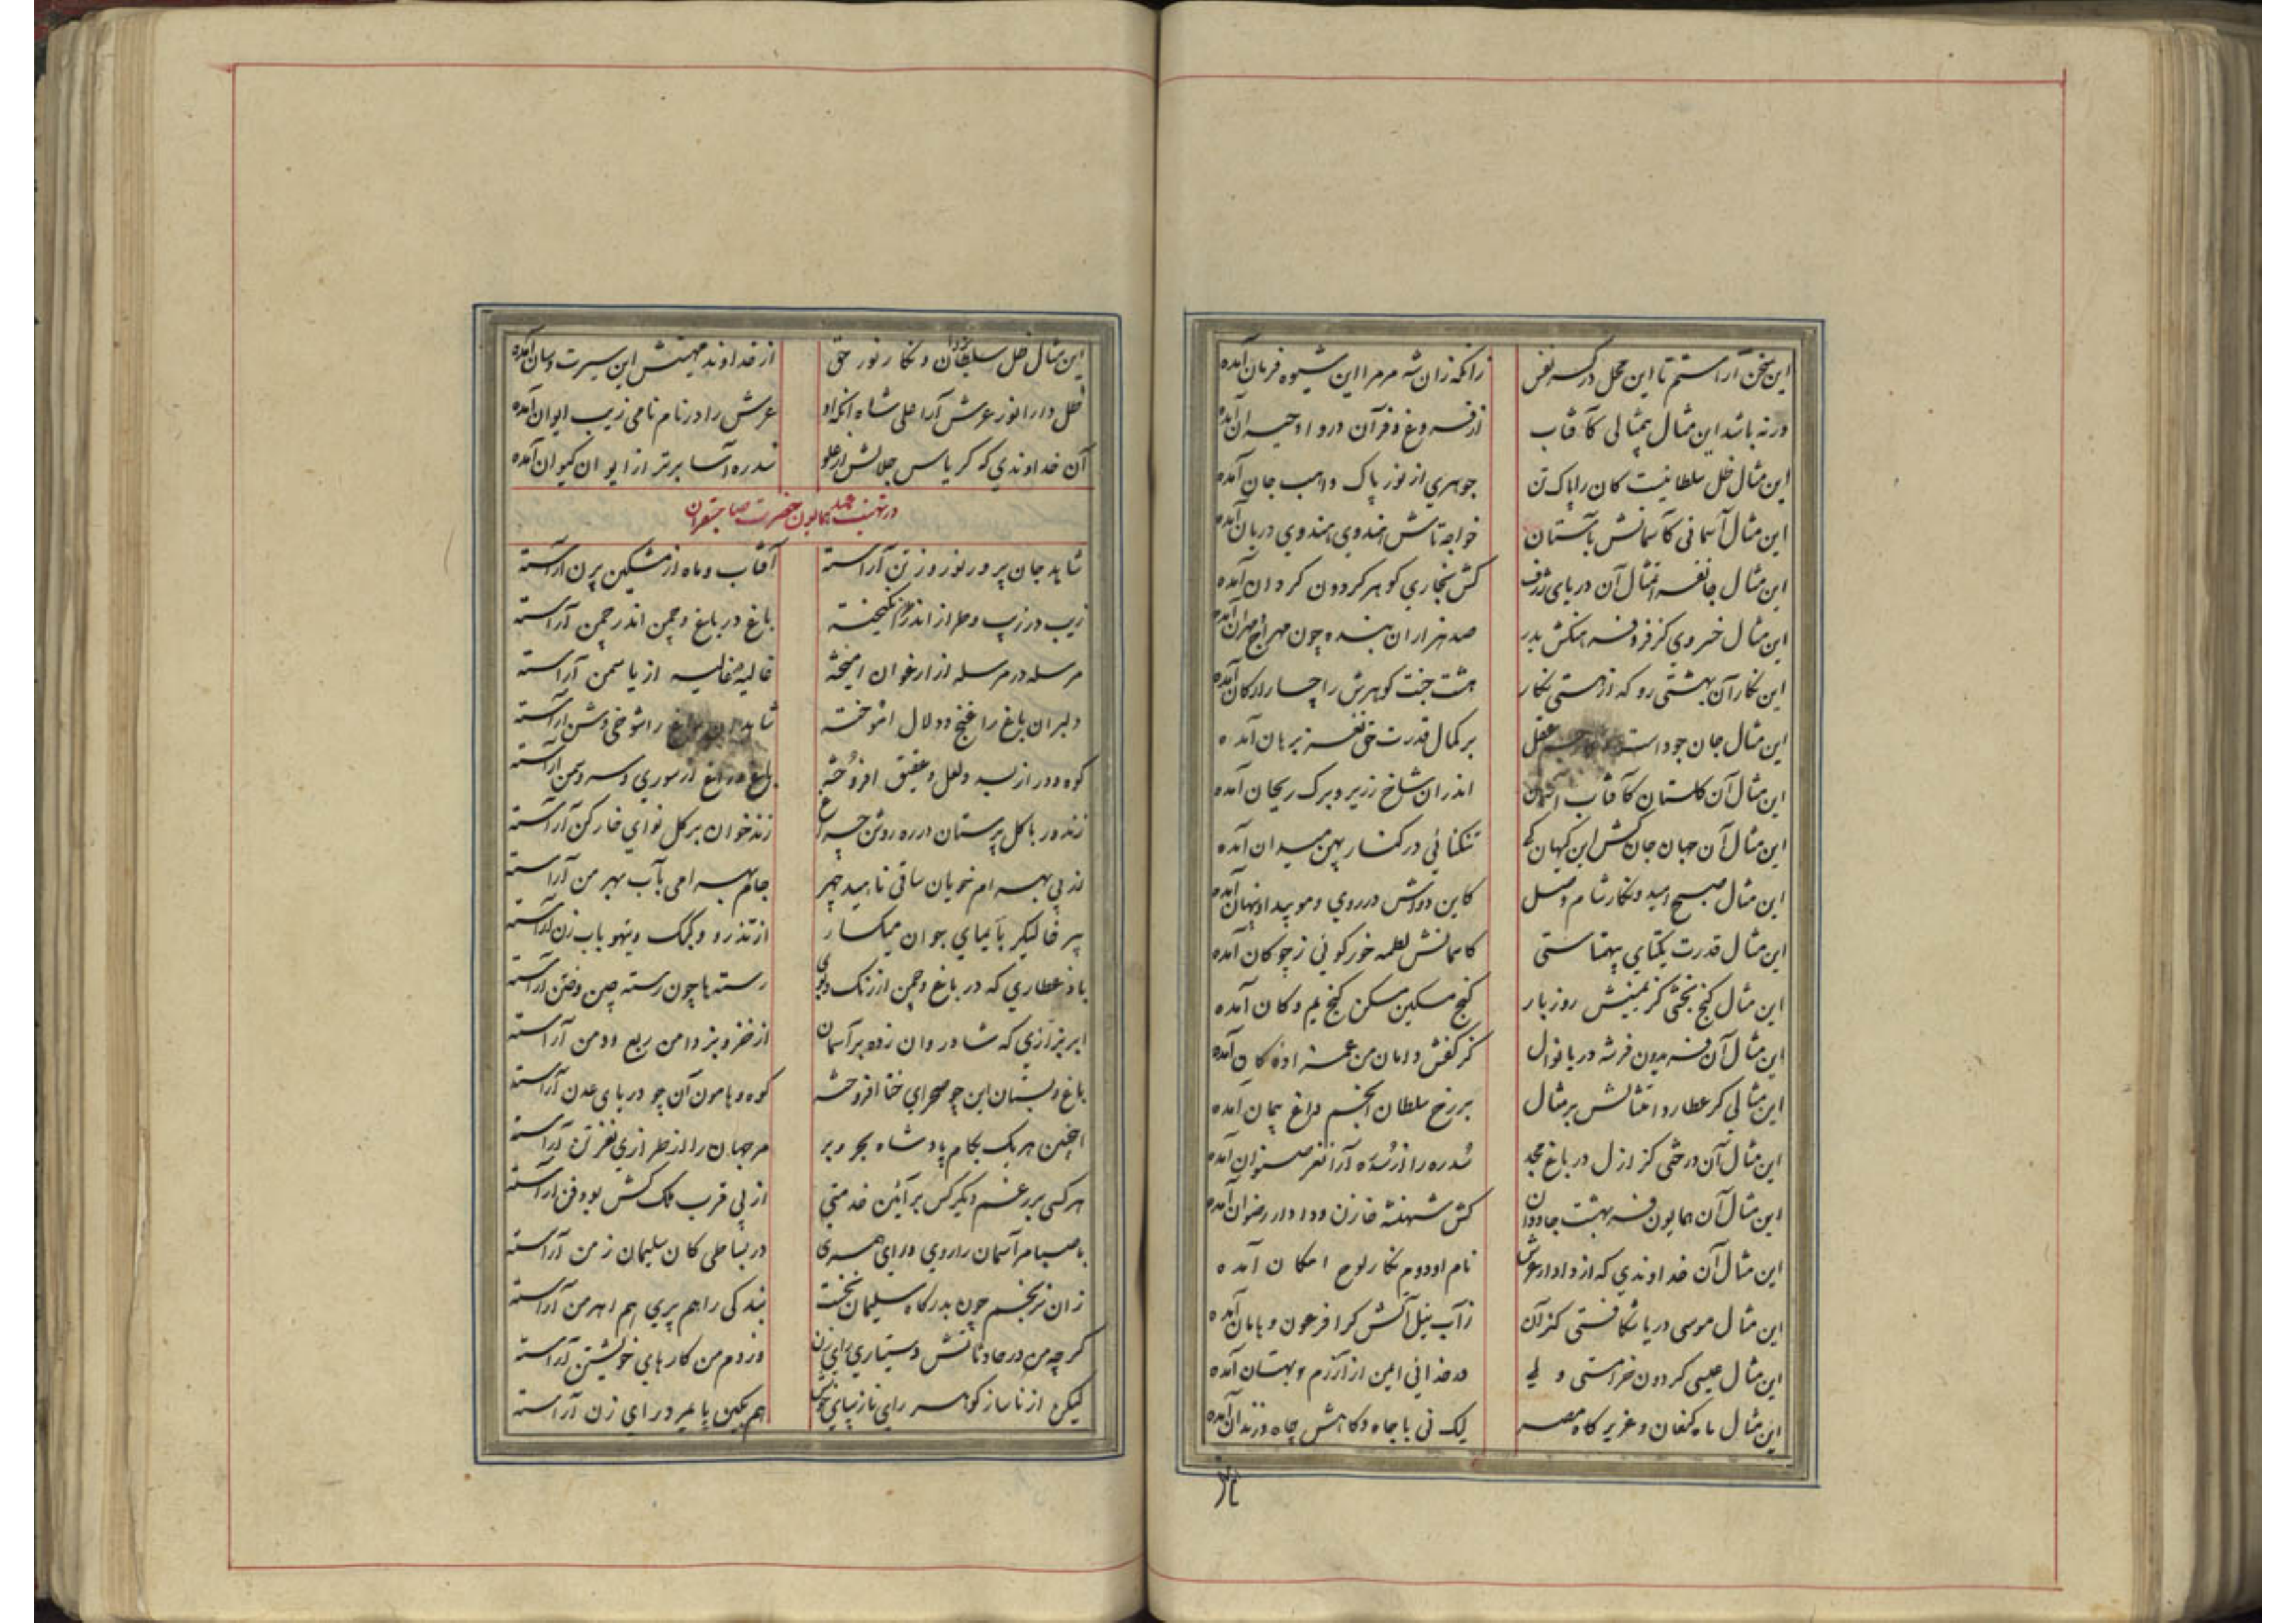 این سخن آراستم تا این محل درکسه نفس زانکه زان شه مر مرا این شیوه فرمان آمده
ورنه باشد این مثال بیمثالی کآفتاب از فروغ و فر آن در وادحیران آمده
این مثال ظل سلطانیست کان را پاک تن جوهری از نور پاک واهب جان آمده
این مثال آسمانی کآسمانش بآستان خواجه تاش هندوی هندوی دربان آمده
این مثال جانفزا تمثال آن دریای ژرف کش بخاری گوهر گردون گردان آمده
این مثال خسروی کز فر و فرهنگش بدر صد هزاران بنده چون مهراج و مهران آمده
این نگار آن بهشتی رو که از هستی نگار هشت جنت گوهرش را چار ارکان آمده
این مثال جان جود است عقل بر کمال قدرت حق نغز برهان آمده
این مثال آن گلستان کآفتاب آسمان اندران شاخ زریر و برگ ریحان آمده
این مثال آن جهان جان کش این کیهان تنگنائی در کنار پهن میدان آمده
این مثال صبح امید و نگار شام وصل کاین دو از روی و مو پیدا و پنهان آمده
این مثال قدرت یکتای بیهمتاستی کآسمانش لطمه خور گوئی ز چوگان آمده
این مثال گنج بخشی کز یمینش روز بار کنج مسکین مسکن گنج یم و کان آمده
این مثال آن فریدون فر شه دریا نوال کز کفش دامان من کان آمده
این مثالی کز عطارد امتثالش بر مثال بر رخ سلطان انجم داغ پیمان آمده
این مثال آن درختی کز ازل در باغ مجد سدره را از سده آرا نغز آمده
این مثال آن همایون فر بهشت جاودان کش شهنشه خازن و دادار رضوان آمده
این مثال آن خداوندی که از دادار عرش نام او دوم نگار لوح امکان آمده
این مثال موسی دریا شکافستی کز آن ز آب نیل آتش گرا فرعون و هامان آمده
این مثال عیسی گردون خراستی ولی در خدائی ایمن از آزرم و بهتان آمده
این مثال ماه کنعان و عزیز گاه مصر لیک نی با جاه و گاهش چاه و زندان آمده
این مثال ظل سلطان و نگار نور حق از خداوند مهینش این سیرت و سان آمده
ظل دارا نور عرش آرا علی شاه آنکه او عرش را در نام نامی زیب ایوان آمده
آن خداوندی که کریاس جلالش از علو سدره آسا برتر از ایوان کیوان آمده
در تهنیت همایون حضرت صاحبقران
شاید جان پرور نوروز تن آراسته آفتاب و ماه از مشکین پرن آراسته
زیب در زیب و طراز اندر طراز انگیخته باغ در باغ و چمن اندر چمن آراسته
مرسله در مرسله از ارغوان آمیخته غالیه در غالیه از یاسمن آراسته
دلبران باغ را غنج و دلال آموخته شاهدان راغ را شوخی و شن آراسته
کوه و در از بسد و لعل و عقیق افروخته باغ و راغ از سوری و سرو و سمن آراسته
زند ور با گل پرستان در ره روشن چراغ زند خوان بر گل نوای خارکن آراسته
از پی بهرام خویان ساقی ناهید چهر جام بهرامی بآب مهر من آراسته
پیر خالیگر بآیمای جوان میگسار از تذرو و کبک و تیهو باب زن آراسته
باد عطاری که در باغ و چمن از رنگ و بوی رسته ها چون رسته چین و ختن آراسته
ابر بزازی که شادروان زده بر آسمان از خز و بز دامن ربع و دمن آراسته
باغ و بستان این چو صحرای ختا افروخته کوه و هامون آن چو دریای عدن آراسته
اینچنین هر یک بکام پادشاه بحر و بر مر جهان را از طرازی نغز تن آراسته
هر کسی بر رغم دیگر کس بر آئین خدمتی از پی قرب ملک کش بود فن آراسته
با صبا مر آسمان را روی و رای همسری در بساطی کان سلیمان زمن آراسته
زان نرنجم چون بدرگاه سلیمان نخست بندگی را هم پری هم اهرمن آراسته
گرچه من در حادثاتش دستیاری رای زن وز دوم من کارهای خویشتن آراسته
لیکن از ناساز گوهر رای نازیبای خویش هم بکین پا میر در رای زن آراسته